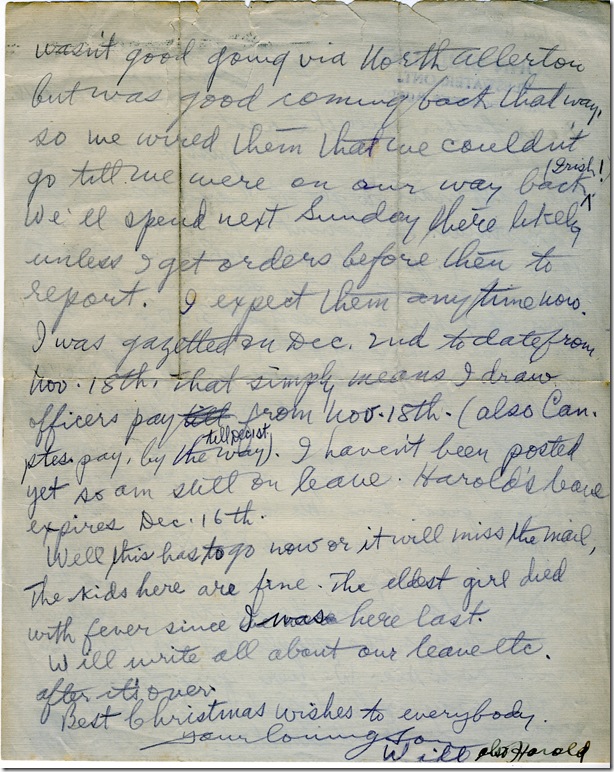 wasn't good going via North Allerton
but was good coming back that way,
so we wired them that we couldn't
go till we were on our way back (Irish!
We'll spend next Sunday there likely
unless I get orders before then to
report. I expect them anytime now.
I was gazetted on Dec. 2nd to date from
Nov. 18th. That simply means I draw
officers pay till from Nov. 18th. (also Can.
ptes. pay, by the way). till Dec 1st I haven't been posted
yet so am still on leave. Harold's leave
expires Dec. 16th.
Well this has to go now or it will miss the mail,
The kids here are fine. The eldest girl died
with fever since I was here last.
Will write all about our leave etc.
after it's over.
Best Christmas wishes to everybody.
Your loving son
Will also Harold